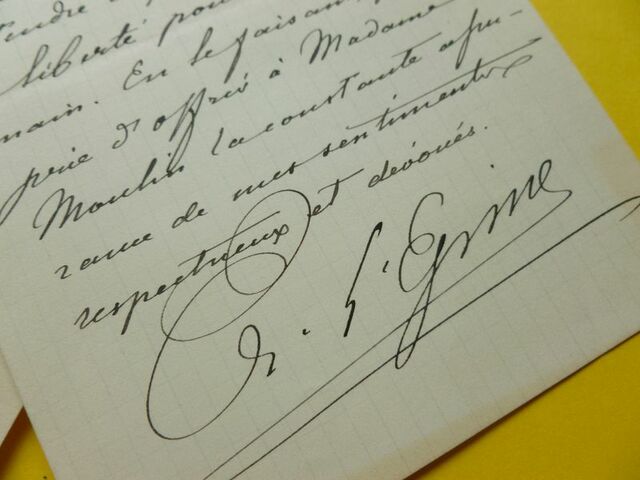 liberté pour
main. En le faisant,
prie d'offrir à Madame
Moulin la constante assu-
rance de mes sentiments
respectueux et dévoués.